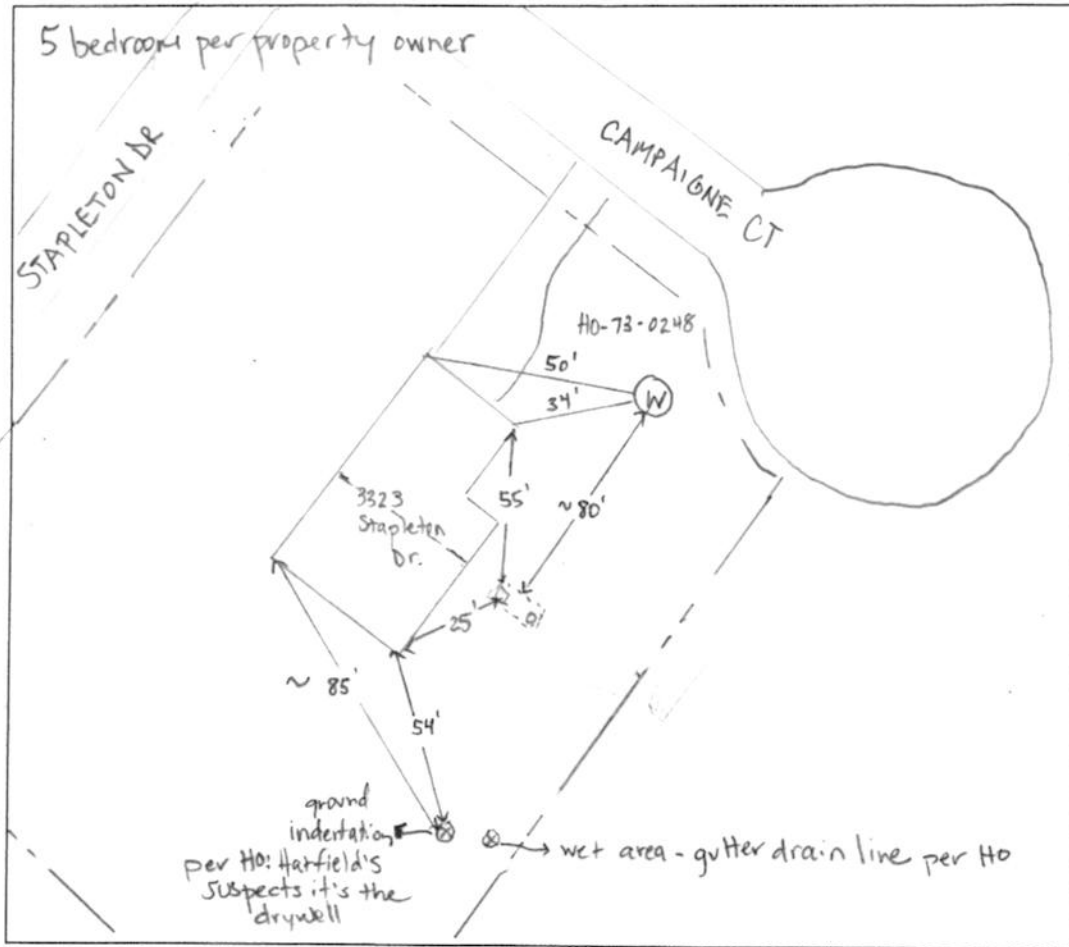 5 bedroom per property owner
STAPLETON DR
CAMPAIGNE CT
HO-73-0248
50'
34'
W
55'
~80'
3323
Stapleton
Dr.
25'
~ 85'
54'
ground
indentation
per HO: Hatfield's
suspects it's the
drywell
wet area - gutter drain line per HO